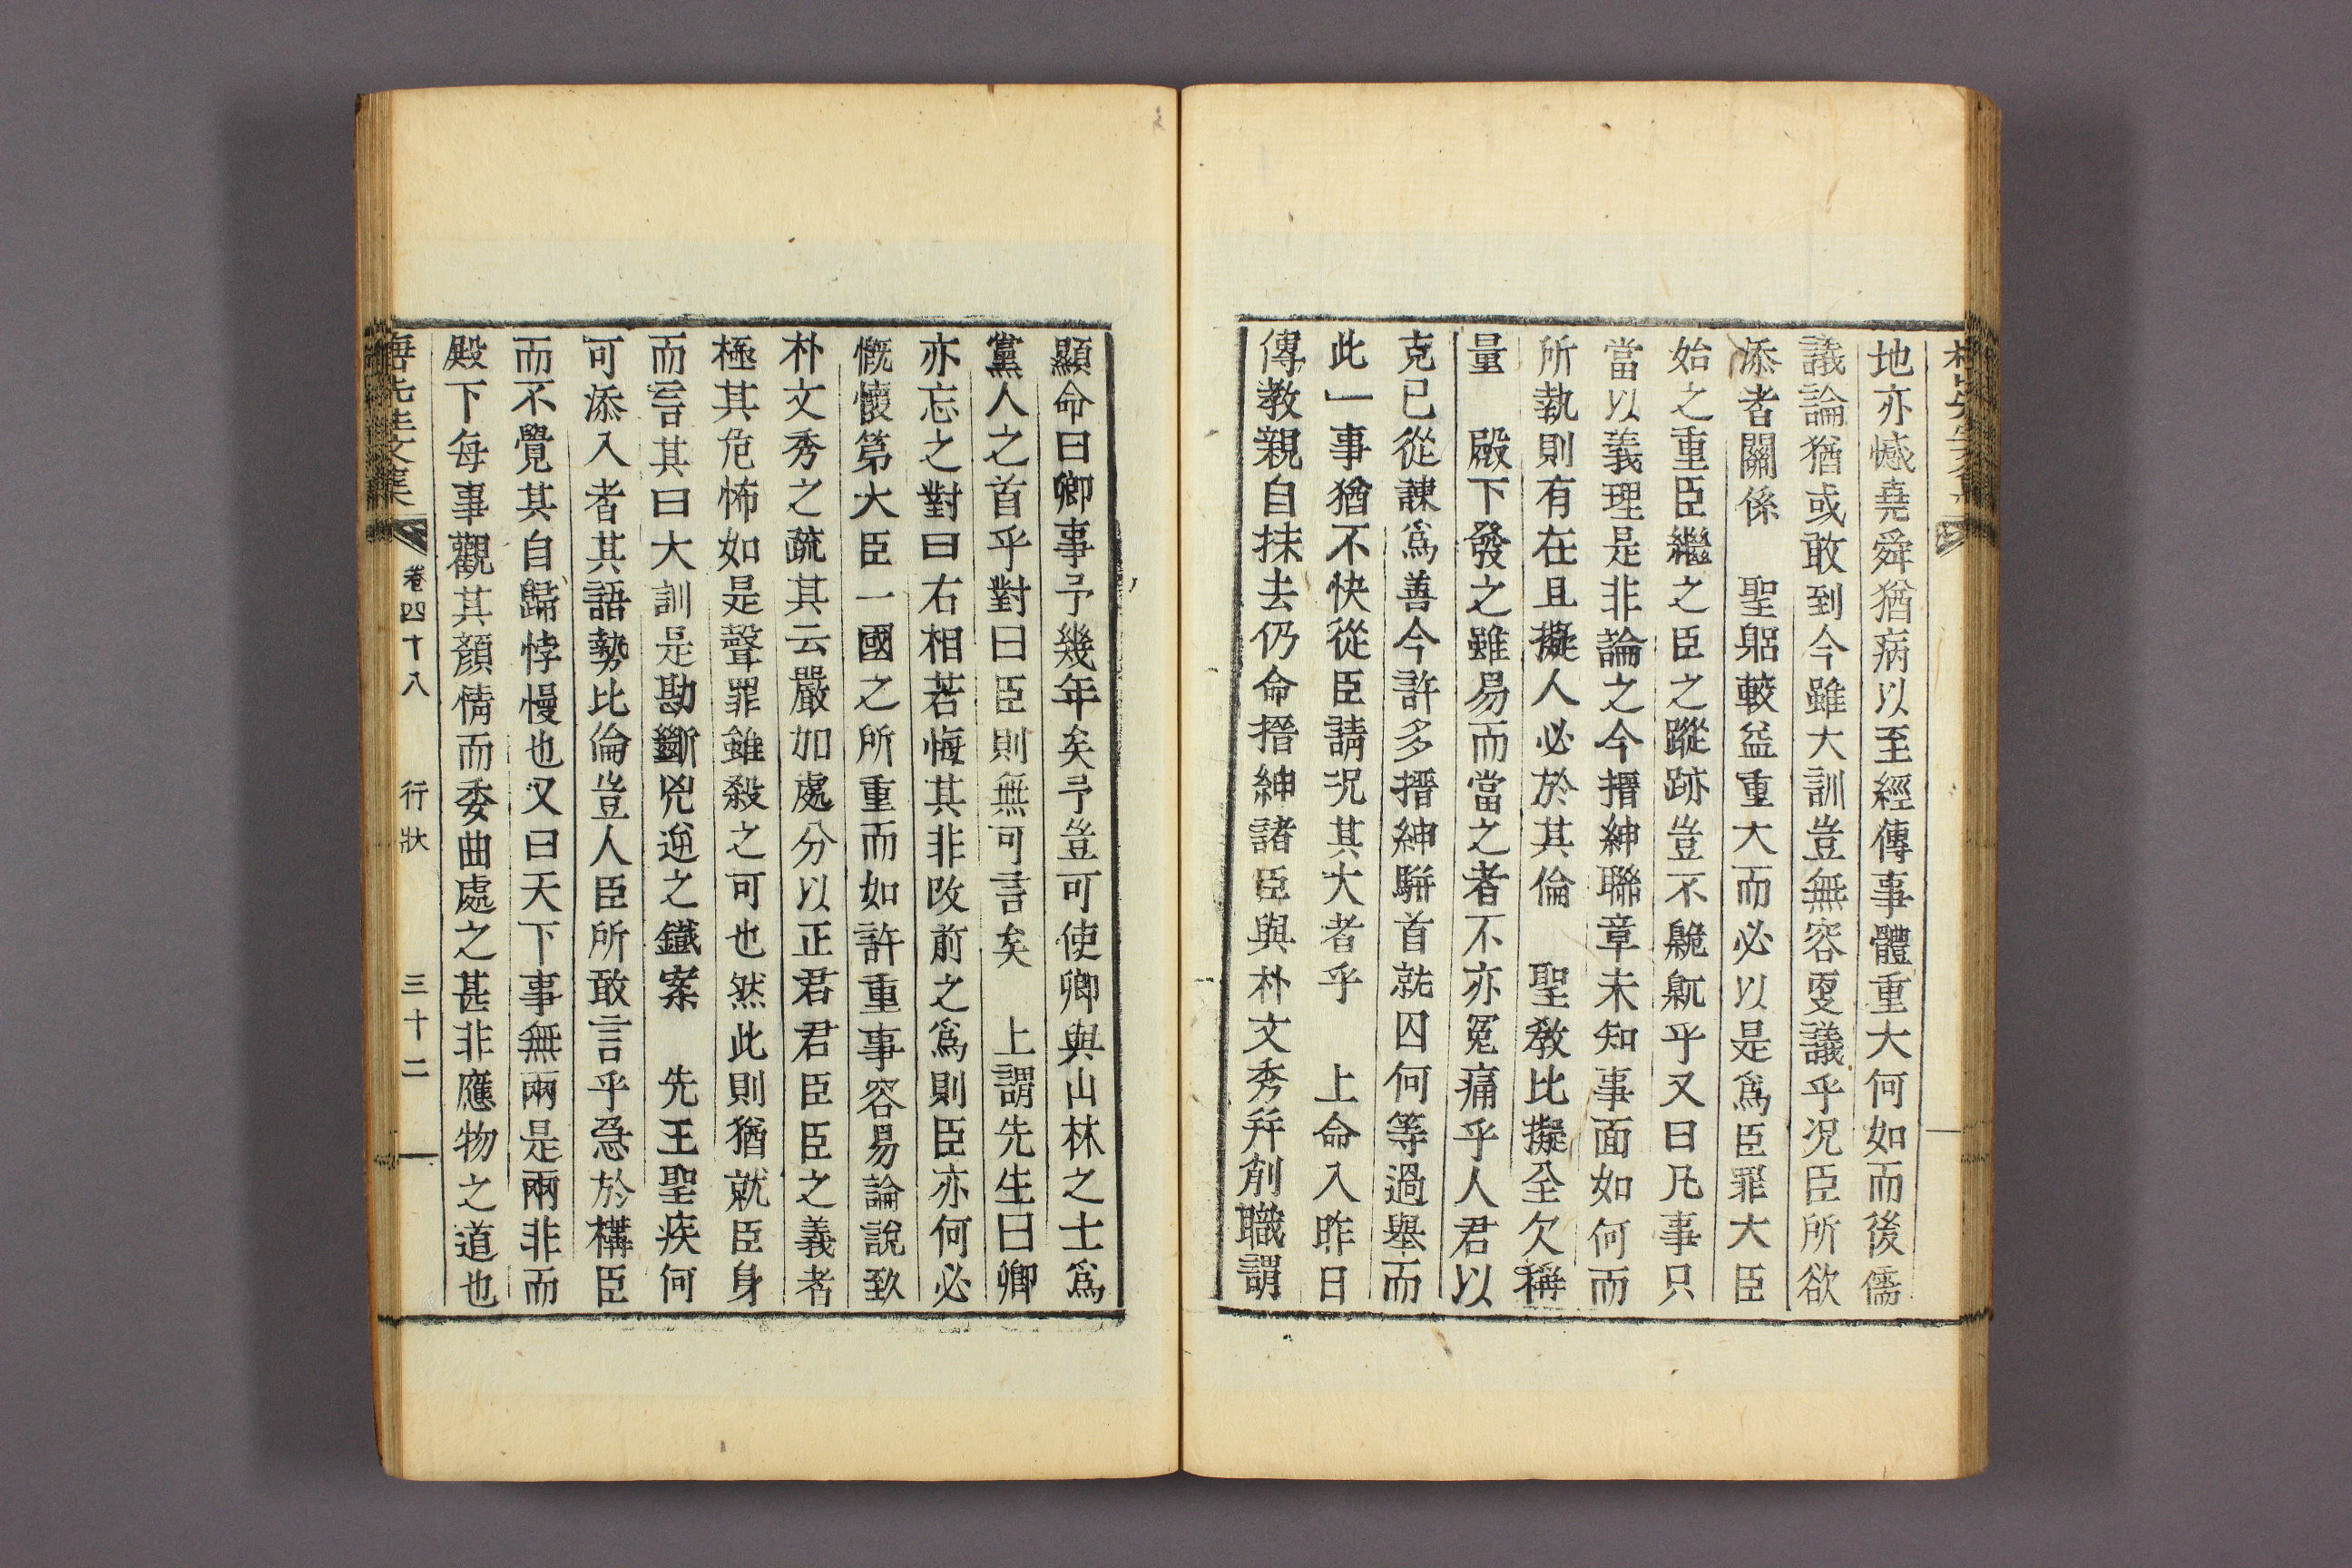 地亦憾堯舜猶病以至經傳事體重大何如而後儒
議論猶或敢到今雖大訓豈無容更議乎况臣所欲
添者關係　聖躳較益重大而必以是爲臣罪大臣
始之重臣繼之臣之蹤跡豈不臲卼乎又曰凡事只
當以義理是非論之今搢紳聯章未知事面如何而
所執則有在且擬人必於其倫　聖敎比擬全欠稱
量　殿下發之雖易而當之者不亦冤痛乎人君以
克已從諫爲善今許多搢紳騈首就囚何等過舉而
此一事猶不快從臣請况其大者乎　上命入昨日
傳教親自抹去仍命搢紳諸臣與朴文秀幷削職謂
顯命曰卿事予幾年矣予豈可使卿與山林之士爲
黨人之首乎對曰臣則無可言矣　上謂先生曰卿
亦忘之對曰右相若悔其非改前之爲則臣亦何必
慨懷第大臣一國之所重而如許重事容易論說致
朴文秀之疏其云嚴加處分以正君君臣臣之義者
極其危怖如是聲罪雖殺之可也然此則猶就臣身
而言其曰大訓是勘斷兇逆之鐵案　先王聖疾何
可添入者其語勢比倫豈人臣所敢言乎急於構臣
而不覺其自歸悖慢也又曰天下事無兩是兩非而
殿下每事觀其顏情而委曲處之甚非應物之道也
先生文集　卷四十八　行狀　三十二